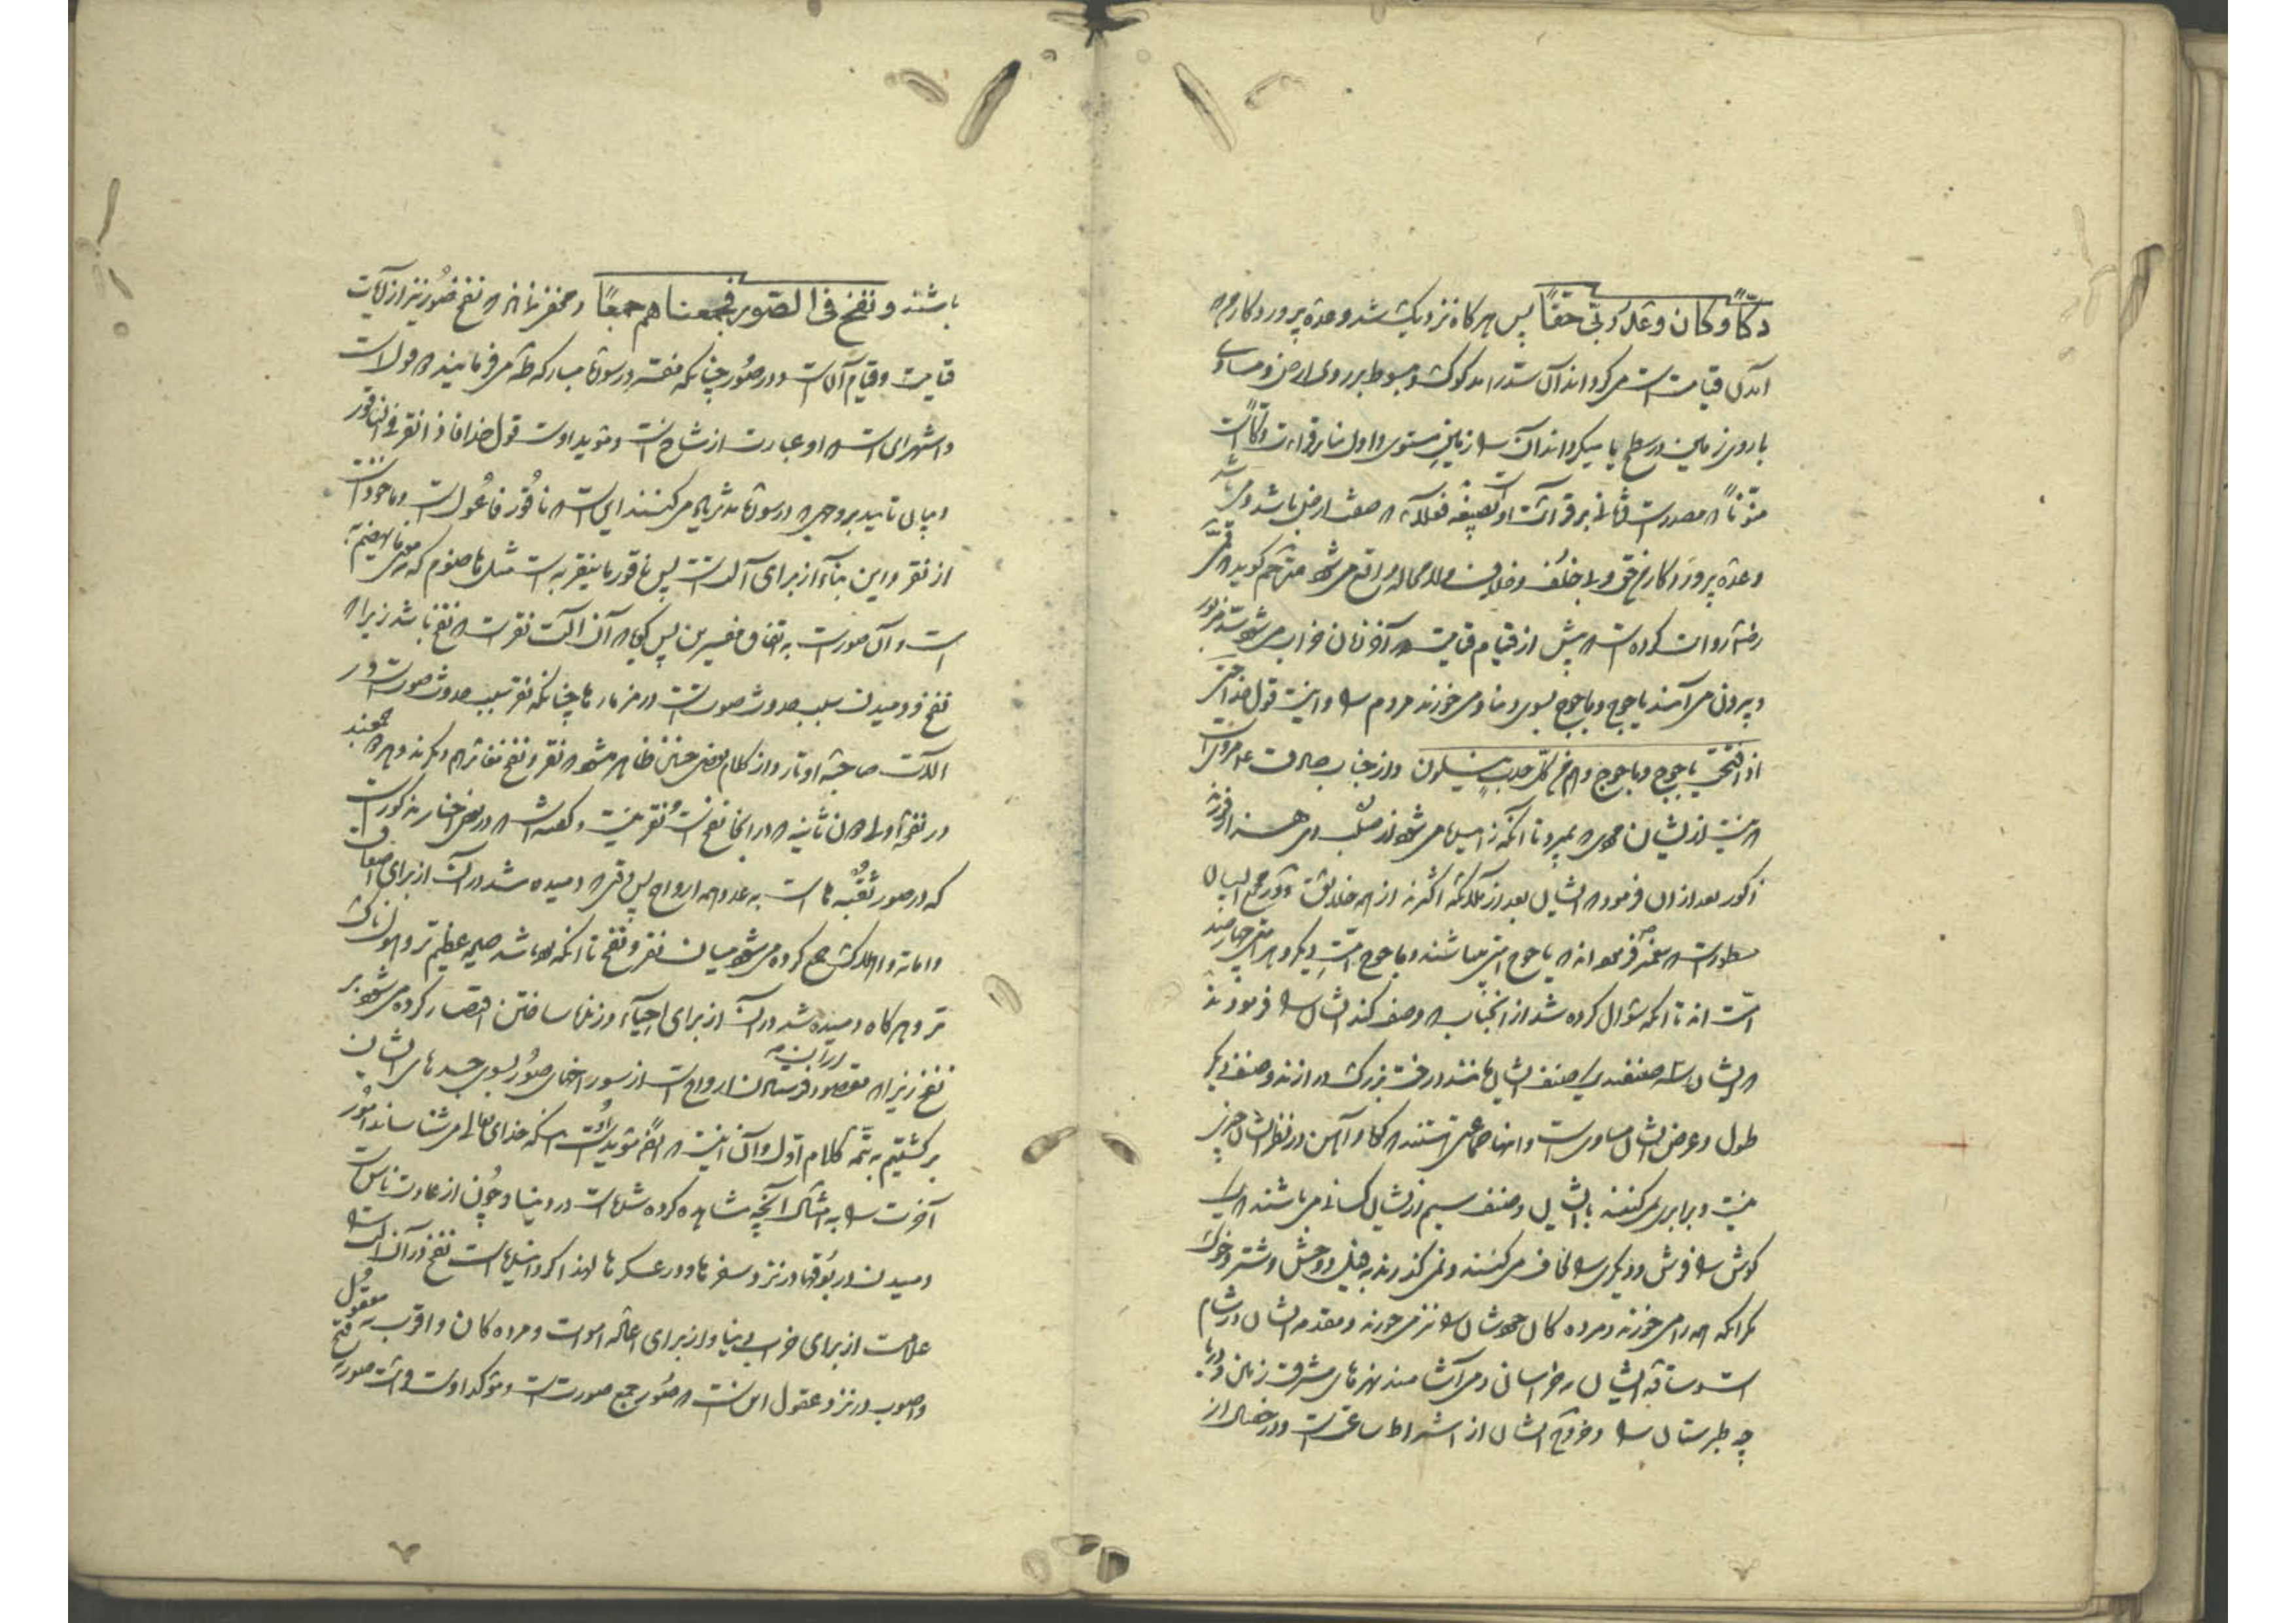 دکّاً وکان وعد ربّی حقّاً پس هرکاه نزدیک شد وعدهٔ پروردکار من
آمدن قیامت است میکرداند آن سد را مدکوک و مبسوط بر روی ارض و مساوی
با روی زمین در سطح یا میکرداند آن را زمین مستوی و اول بنابر قراءت دکّاً است
منوّناً که مصدر است و ثانی بر قرائت او بصیغهٔ فعلاء که صفت ارض باشد و می‌باشد
وعدهٔ پروردکار من حق و بی خلف و خلاف ولا محاله واقع می‌شود مترجم کوید که قمی
رضه روایت کرده است که پیش از قیام قیامت در آخر زمان خراب می‌شود سد مزبور
و بیرون می‌آیند یاجوج و ماجوج بسوی دنیا و می‌خورند مردم را و اینست قول خدا حتی
اذا فتحت یاجوج و ماجوج وهم من کل حدب ینسلون و از جناب صادق ع مرویست
که نیست از ایشان مردی که بمیرد تا آنکه زاییده می‌شود از صلب وی هزار فرزند
ذکور بعد از آن فرمود که ایشان بعد از ملائکه اکثرند از همه خلایق و در مجمع البیان
مسطور است که پیغمبر ص فرموده‌اند که یاجوج امتی میباشند و ماجوج امت دیکر و هر امتی چهارصد
امت اند تا آنکه سؤال کرده شد از آنجناب که وصف کند ایشان را فرمودند
که ایشان سه صنفند یک صنف ایشان مانند درخت بزرک درازند و صنف دیکر
طول و عرض ایشان مساویست و اینها جماعتی هستند که کوه و آهن در نظر ایشان چیزی
نیست و برابری نمی‌کنند با ایشان و صنف سیم از ایشان کسانی می‌باشند که یک
کوش را فرش و دیکری را لحاف می‌کنند و نمی‌کذرند به فیل و وحش و شتر و خوک
مکر آنکه همه را می‌خورند و مرده کان خودشان را نیز می‌خورند و مقدمه ایشان در شام
است و ساقه ایشان به خراسان و می‌آشامند نهرهای مشرق زمین و دریا
چه طبرستان را و خروج ایشان از اشراط ساعت است و در خصال از
باشند ونفخ فی الصّور فجمعناهم جمعًا و مخفی نماند که نفخ صور نیز از آیات
قیامت و قیام آنست و در صور چنانکه مفسر در سوره مبارکه طه می‌فرمایند که قول است
و اشهر ای است که او عبارت از شاخ است و مؤید اوست قول خدا فاذا نقر فی الناقور
و بیان تأیید بر وجهی که در سوره مدثر یاد می‌کنند این است که ناقور فاعول است و ماخوذ است
از نقر و این بناء از برای آلت است پس ناقور ما ینقر به است مثل هاضوم که بمعنی ما یهضم به
است و آن صور است به اتفاق مفسرین پس کویا که آن آلت نقر است که نفخ باشد زیرا که
نفخ و دمیدن سبب حدوث صوت است در مزمارها چنانکه نقر سبب حدوث صوت است در
آلات صاحبهٔ اوتار و از کلام بعضی چنین ظاهر می‌شود که نقر و نفخ متغایرهم دیکرند و هر دو مجمعند
در نفخهٔ اولی دون ثانیه که در اینجا نفخ است و نقر نیست و کفته است که در بعضی اخبار مذکور است
که در صور ثقبه‌ها است به عدد همه ارواح پس وقتی که دمیده شد در آن از برای اصعاق
و اماته و اهلاک جمع کرده می‌شود میان نقر و نفخ تا آنکه بوده باشد صیحه عظیم‌تر و هولناک
تر و هرکاه دمیده شد در آن از برای احیاء و زنده ساختن اقتصار کرده می‌شود بر
نفخ زیرا که مقصود در آن فرستادن ارواح است از سوراخهای صور بسوی جسدهای ایشان
برکشتیم به تتمه کلام اوّل و آن اینست که ایضا مؤید اوست آنکه خدای تعالی می‌شناساند امور
آخرت را به امثال آنچه مشاهده کرده شده است در دنیا و چون از عادت ناس است
دمیدن در بوقها در نزد سفرها و در عسکرها لهذا کردانیده است نفخ در آن آلت را
علامت از برای خرابی دنیا و از برای اعاده اموات و مرده کان و اقرب به معقول
و اصوب در نزد عقول این است که صور جمع صورت است و مؤکد اوست قرائت صور به فتح